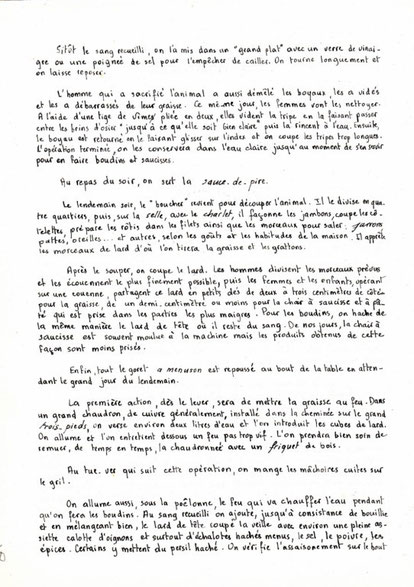 Sitôt le sang recueilli, on l'a mis dans un "grand plat" avec un verre de vinai-
gre ou une poignée de sel pour l'empêcher de cailler. On tourne longuement et
on laisse reposer.
L'homme qui a sacrifié l'animal a aussi démêlé les boyaux, les a vidés
et les a débarrassés de leur graisse. Ce même jour, les femmes vont les nettoyer.
A l'aide d'une tige de vîmes pliée en deux, elles vident la tripe en la faisant passer
entre les brins d'osier "jusqu'à ce qu'elle soit bien claire" puis la rincent à l'eau. Ensuite,
le boyau est retourné en le faisant glisser sur l'index et on coupe les tripes trop longues.
L'opération terminée, on les conservera dans l'eau claire jusqu'au moment de s'en servir
pour en faire boudins et saucisses.
Au repas du soir, on sert la sauce-de-pire.
Le lendemain soir, le "boucher" revient pour découper l'animal. Il le divise en qua-
tre quartiers, puis, sur la selle, avec le charlet, il façonne les jambons, coupe les cô-
telettes, prépare les rôtis dans les filets ainsi que les morceaux pour saler: jarrons
pattes, oreilles... et autres, selon les goûts et les habitudes de la maison. Il apprête
les morceaux de lard d'où l'on tirera la graisse et les grattons.
Après le souper, on coupe le lard. Les hommes divisent les morceaux prévus
et les écouennent le plus finement possible, puis les femmes et les enfants, opérant
sur une couenne, partagent ce lard en petits dés de deux à trois centimètres de côté
pour la graisse, de un demi-centimètre ou moins pour la chair à saucisse et à pâ-
té qui est prise dans les parties les plus maigres. Pour les boudins, on hache de
la même manière le lard de tête où il reste du sang. De nos jours, la chair à
saucisse est souvent moulue à la machine mais les produits obtenus de cette
façon sont moins prisés.
Enfin, tout le goret a menuson est repoussé au bout de la table en atten-
dant le grand jour du lendemain.
La première action, dès le lever, sera de mètre la graisse au feu. Dans
un grand chaudron, de cuivre généralement, installé dans la cheminée sur le grand
trois-pieds, on verse environ deux litres d'eau et l'on introduit les cubes de lard.
On allume et l'on entretient dessous un feu pas trop vif. L'on prendra bien soin de
remuer, de temps en temps, la chaudronnée avec un friquet de bois.
Au tue-ver qui suit cette opération, on mange les mâchoires cuites sur
le gril.
On allume aussi, sous la poêlonne, le feu qui va chauffer l'eau pendant
qu'on fera les boudins. Au sang recueilli on ajoute, jusqu'à consistance de bouillie
et en mélangeant bien, le lard de tête coupé la veille avec environ une pleine as-
siette calotte d'oignons et surtout d'échalotes hachés menus, le sel, le poivre, les
épices. Certains y mettent du persil haché. On vérifie l'assaisonnement sur le bout